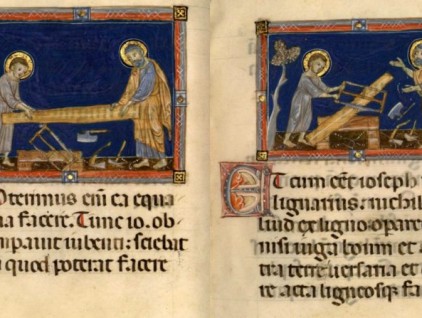 otemus eni ea equa
a facere. Tunc io. ob
mpauit iubenti: sciebat
i quod poterat facere
Et cum eet ioseph
lignarius: nichil
liud ex ligno opare
nisi iuga boum et
tra terre uersaria et
re acta ligneosq fa